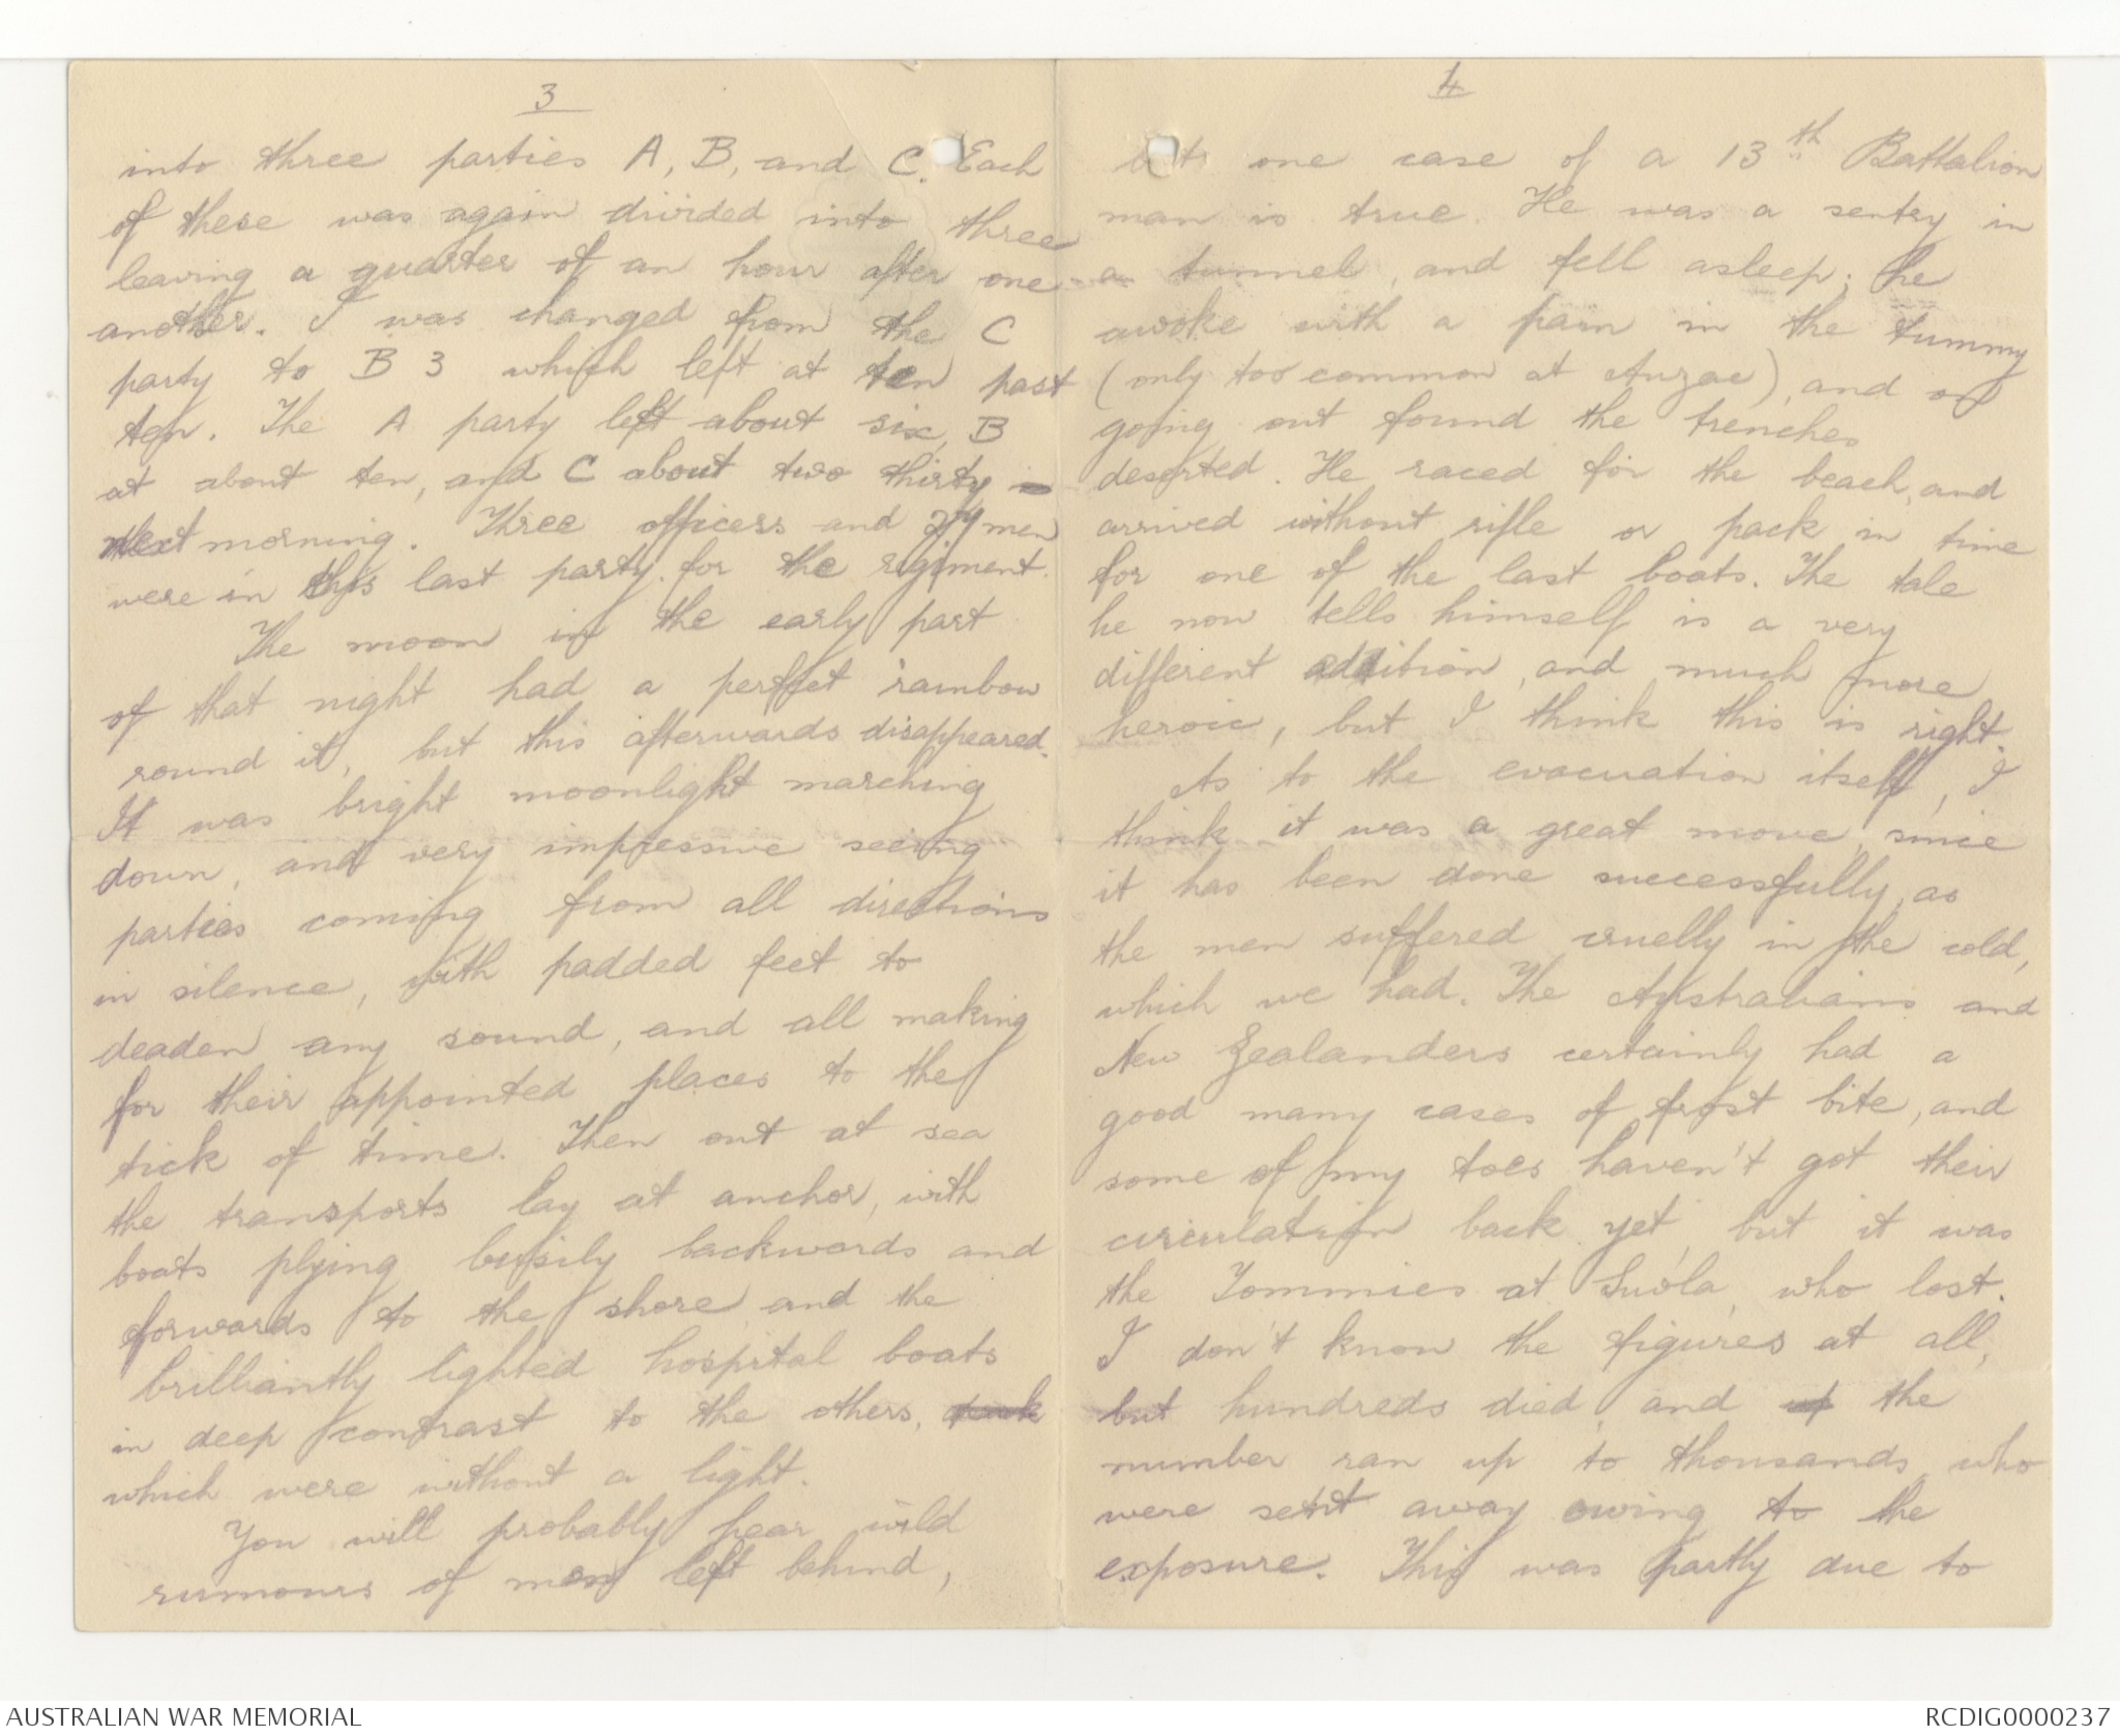 3
into three parties A, B, and C. Each
of these was again divided into three
leaving a quarter of an hour after one
another. I was changed from the C
party to B 3 which left at ten past
ten. The A party left about six, B
at about ten, and C about two thirty
next morning. Three officers and men
were in this last party for the regiment.
The moon in the early part
of that night had a perfect rainbow
round it, but this afterwards disappeared.
It was bright moonlight marching
down, and very impressive seeing
parties coming from all directions
in silence, with padded feet to
deaden any sound, and all making
for their appointed places to the
tick of time. Then out at sea
the transports lay at anchor, with
boats plying busily backwards and
forwards to the shore, and the
brilliantly lighted hospital boats
in deep contrast to the others,
which were without a light.
You will probably hear wild
rumours of men left behind,
4
but one case of a 13th Battalion
man is true. He was a sentry in
a tunnel, and fell asleep; he
awoke with a pain in the tummy
(only too common at Anzac), and on
going out found the trenches
deserted. He raced for the beach, and
arrived without rifle or pack in time
for one of the last boats. The tale
he now tells himself is a very
different addition, and much more
heroic, but I think this is right.
As to the evacuation itself, I
think it was a great move, since
it has been done successfully, as
the men suffered cruelly in the cold,
which we had. The Australians and
New Zealanders certainly had a
good many cases of frost bite, and
some of my toes haven't got their
circulation back yet, but it was
the Tommies at Suvla, who lost.
I don't know the figures at all,
but hundreds died, and the
number ran up to thousands who
were sent away owing to the
exposure. This was partly due to
AUSTRALIAN WAR MEMORIAL
RCDIG0000237